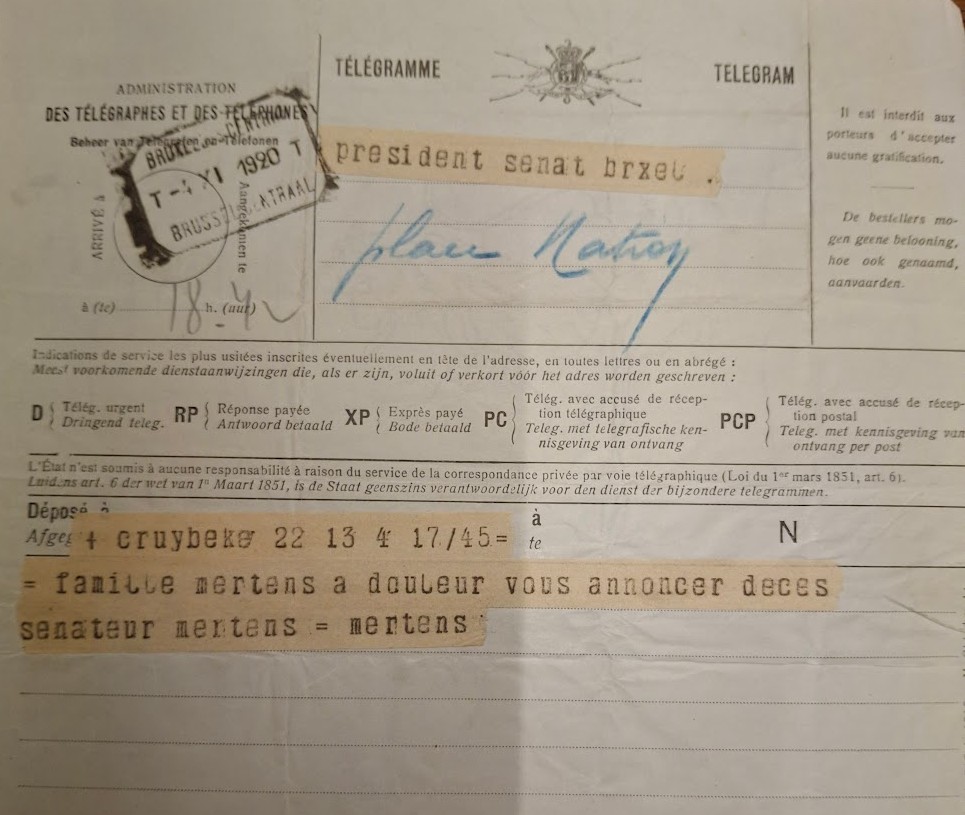 TÉLÉGRAMME
TELEGRAM
ADMINISTRATION
DES TÉLÉGRAPHES ET DES TÉLÉPHONES
Beheer van Telegrafen en Telefonen
BRUXELLES CENTRAL
T - 4 XI 1920 T
BRUSSEL CENTRAAL
ARRIVÉ à
Aangekomen te
à (te) 18 h. (uur) 42
president senat brxel .
place
Il est interdit aux
porteurs d'accepter
aucune gratification.
De bestellers mo-
gen geene belooning,
hoe ook genaamd,
aanvaarden.
Indications de service les plus usitées inscrites éventuellement en tête de l'adresse, en toutes lettres ou en abrégé :
Meest voorkomende dienstaanwijzingen die, als er zijn, voluit of verkort vóór het adres worden geschreven :
D { Télég. urgent
Dringend teleg.
RP { Réponse payée
Antwoord betaald
XP { Exprès payé
Bode betaald
PC { Télég. avec accusé de récep-
tion télégraphique
Teleg. met telegrafische ken-
nisgeving van ontvang
PCP { Télég. avec accusé de récep-
tion postal
Teleg. met kennisgeving van
ontvang per post
L'État n'est soumis à aucune responsabilité à raison du service de la correspondance privée par voie télégraphique (Loi du 1er mars 1851, art. 6).
Luidens art. 6 der wet van 1n Maart 1851, is de Staat geenszins verantwoordelijk voor den dienst der bijzondere telegrammen.
Déposé à
Afgeg
+ cruybeke 22 13 4 17/45=
à
te
N
= famille mertens a douleur vous annoncer deces
senateur mertens = mertens